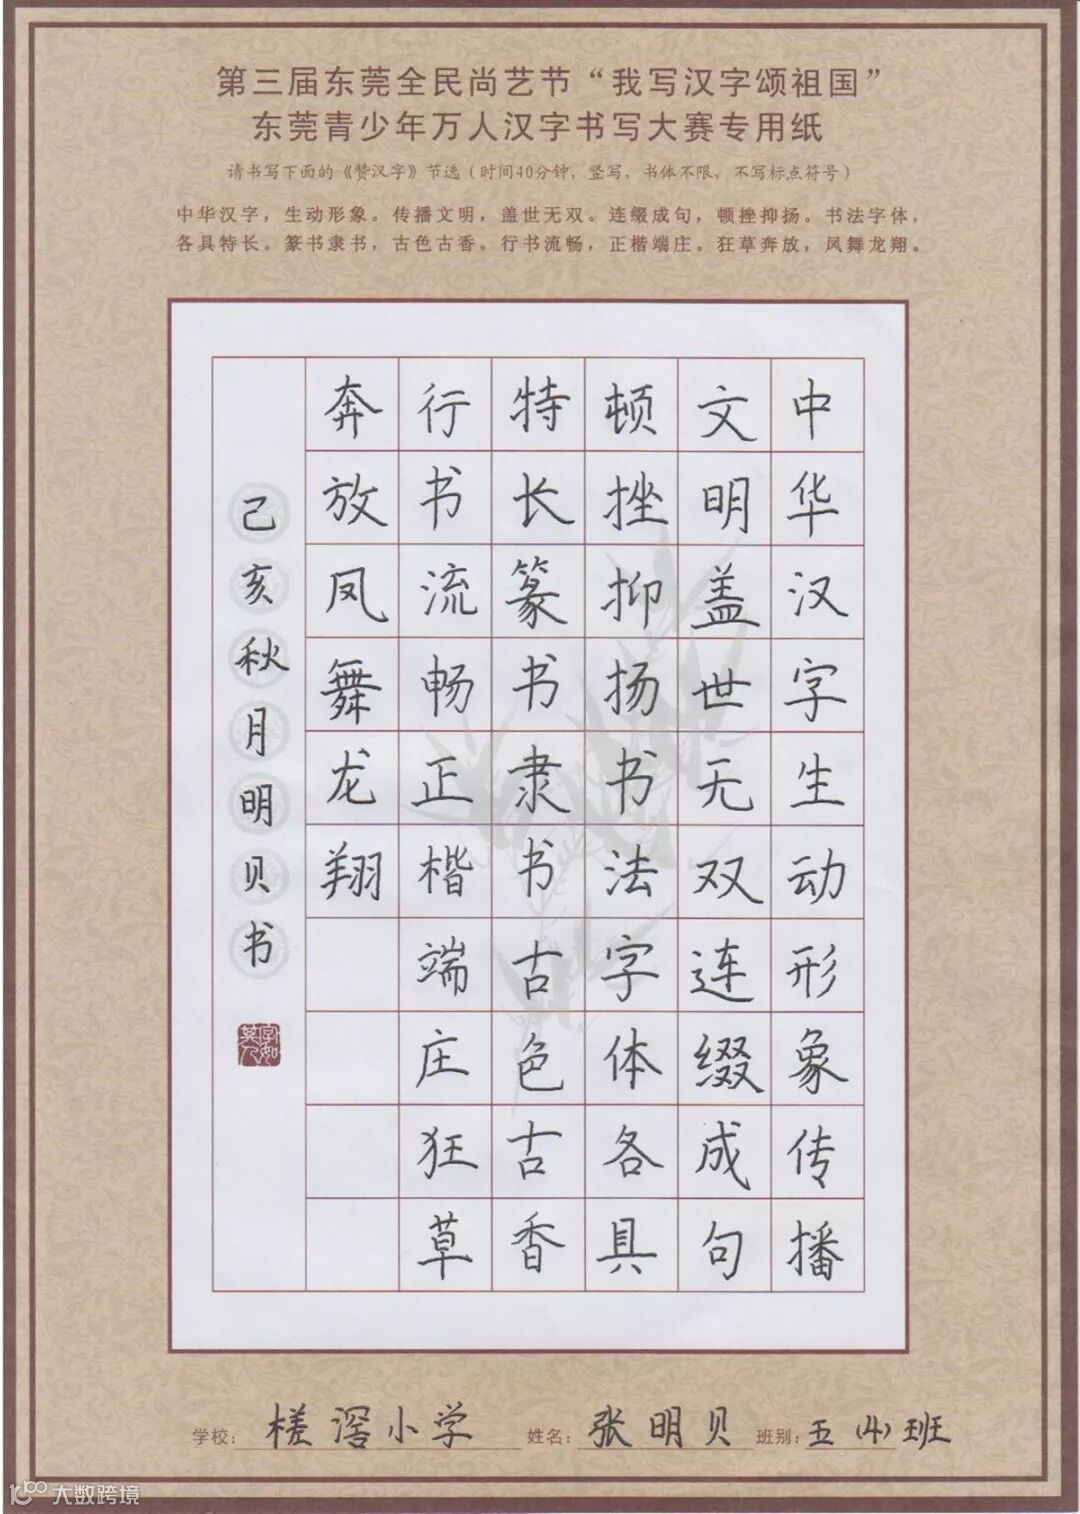 第三届东莞全民尚艺节“我写汉字颂祖国”
东莞青少年万人汉字书写大赛专用纸
请书写下面的《赞汉字》节选(时间40分钟，竖写，书体不限，不写标点符号)
中华汉字，生动形象。传播文明，盖世无双。连缀成句，顿挫抑扬。书法字体，
各具特长。篆书隶书，古色古香。行书流畅，正楷端庄。狂草奔放，凤舞龙翔。
中华汉字生动形象传播
文明盖世无双连缀成句
顿挫抑扬书法字体各具
特长篆书隶书古色古香
行书流畅正楷端庄狂草
奔放凤舞龙翔
己亥秋月明贝书
字如其人
学校：槎滘小学 姓名：张明贝 班别：五(4)班
大数跨境